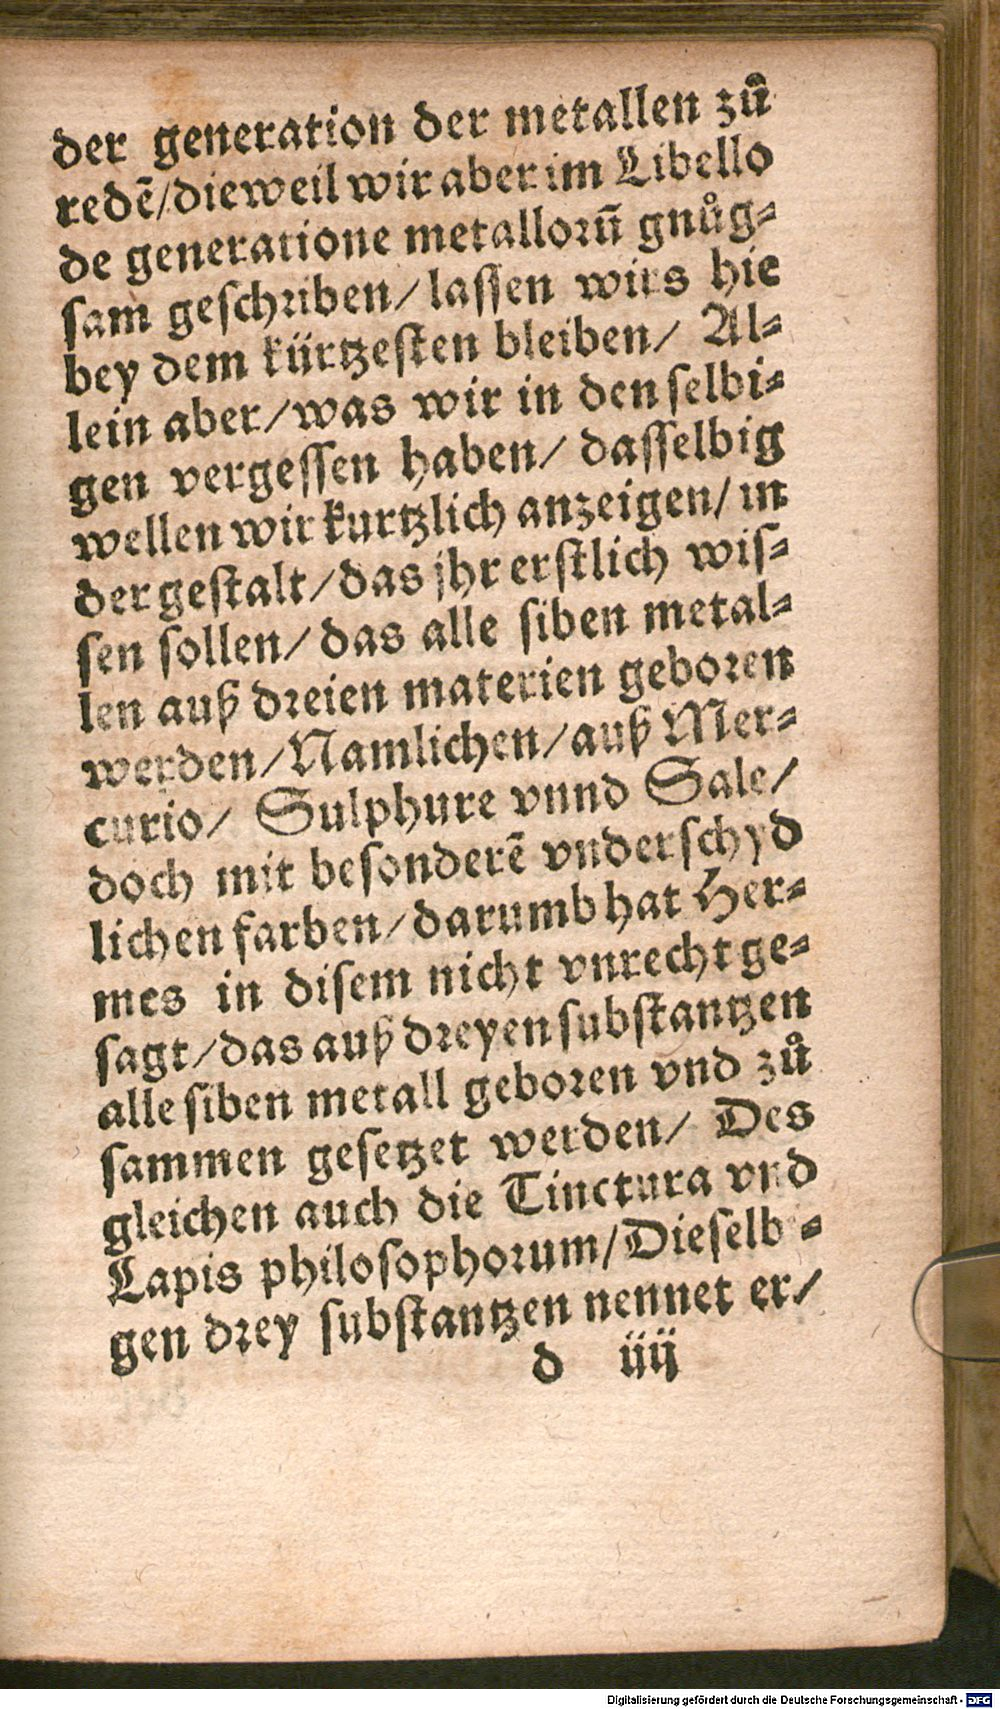 der generation der metallen zů
redē/dieweil wir aber im Libello
de generatione metalloꝛū gnůg⸗
sam geschꝛiben/ lassen wirs hie
bey dem kürtzesten bleiben/ Al⸗
lein aber/was wir in den selbi⸗
gen vergessen haben/ dasselbig
wellen wir kurtzlich anzeigen/ in
der gestalt/das jhr erstlich wis⸗
sen sollen/ das alle siben metal⸗
len auß dꝛeien materien geboꝛen
werden/Namlichen/auß Mer⸗
curio/ Sulphure vnnd Sale/
doch mit besonderē vnderschyd
lichen farben/darumb hat Her⸗
mes in disem nicht vnrecht ge⸗
sagt/das auß dꝛeyen substantzen
alle siben metall geboꝛen vnd zů
sammen gesetzet werden/ Des
gleichen auch die Tinctura vnd
Lapis philosophoꝛum/Dieselbi⸗
gen dꝛey substantzen nennet er/
d iiij
Digitalisierung gefördert durch die Deutsche Forschungsgemeinschaft - DFG